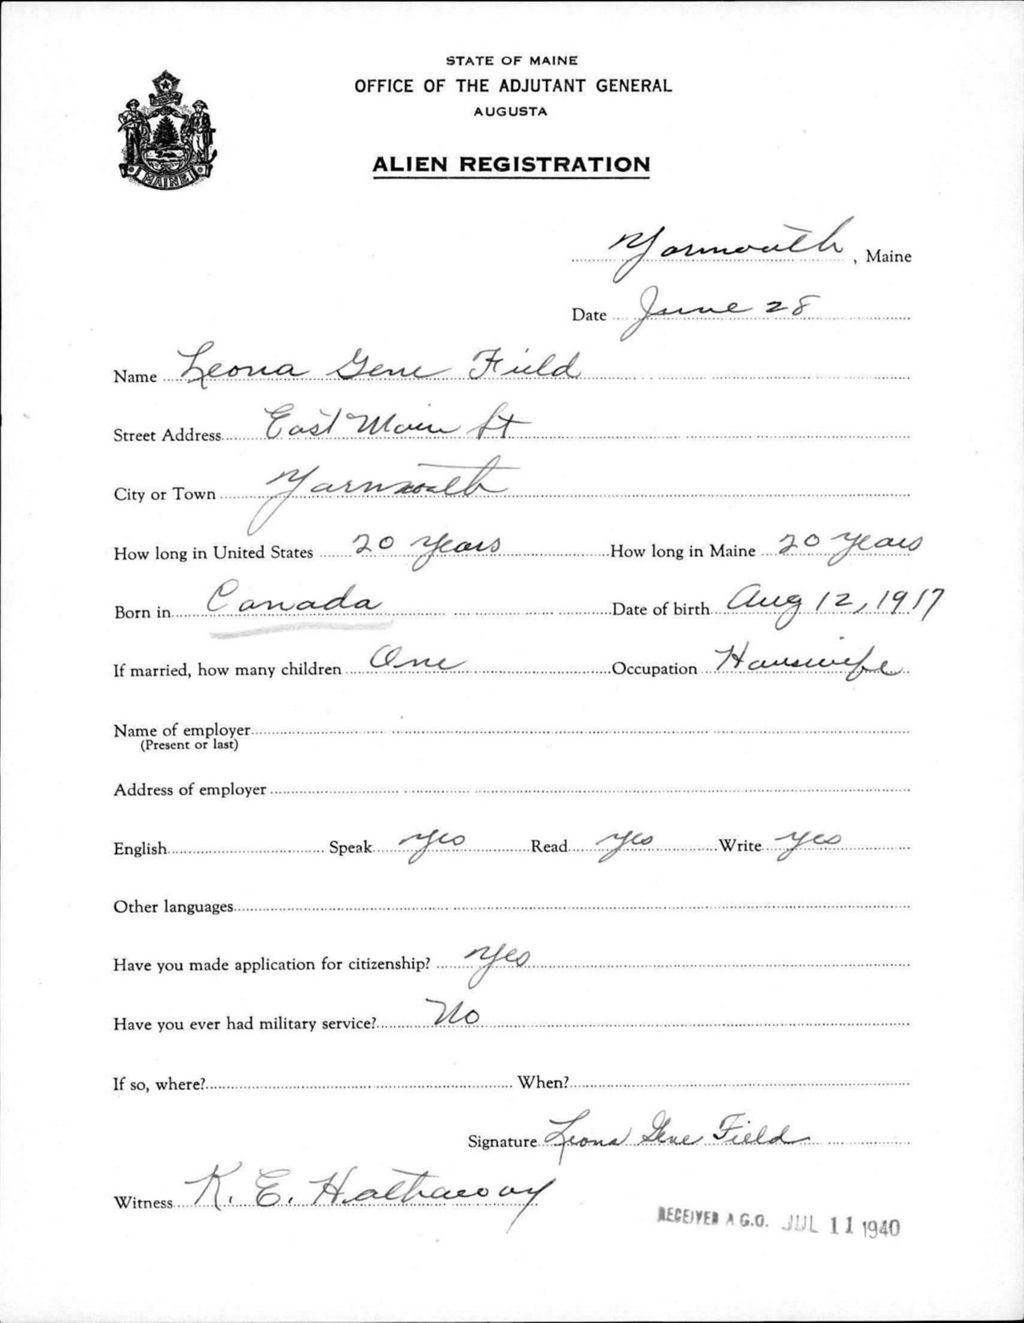 STATE OF MAINE
OFFICE OF THE ADJUTANT GENERAL
AUGUSTA
ALIEN REGISTRATION
MAINE
Yarmouth, Maine
Date June 28
Name Leona Gene Field
Street Address East Main St
City or Town Yarmouth
How long in United States 20 years How long in Maine 20 years
Born in Canada Date of birth Aug 12, 1917
If married, how many children One Occupation Housewife
Name of employer
(Present or last)
Address of employer
English Speak yes Read yes Write yes
Other languages
Have you made application for citizenship? yes
Have you ever had military service? No
If so, where? When?
Signature Leona Gene Field
Witness K. E. Hathaway
RECEIVED A.G.O. JUL 11 1940